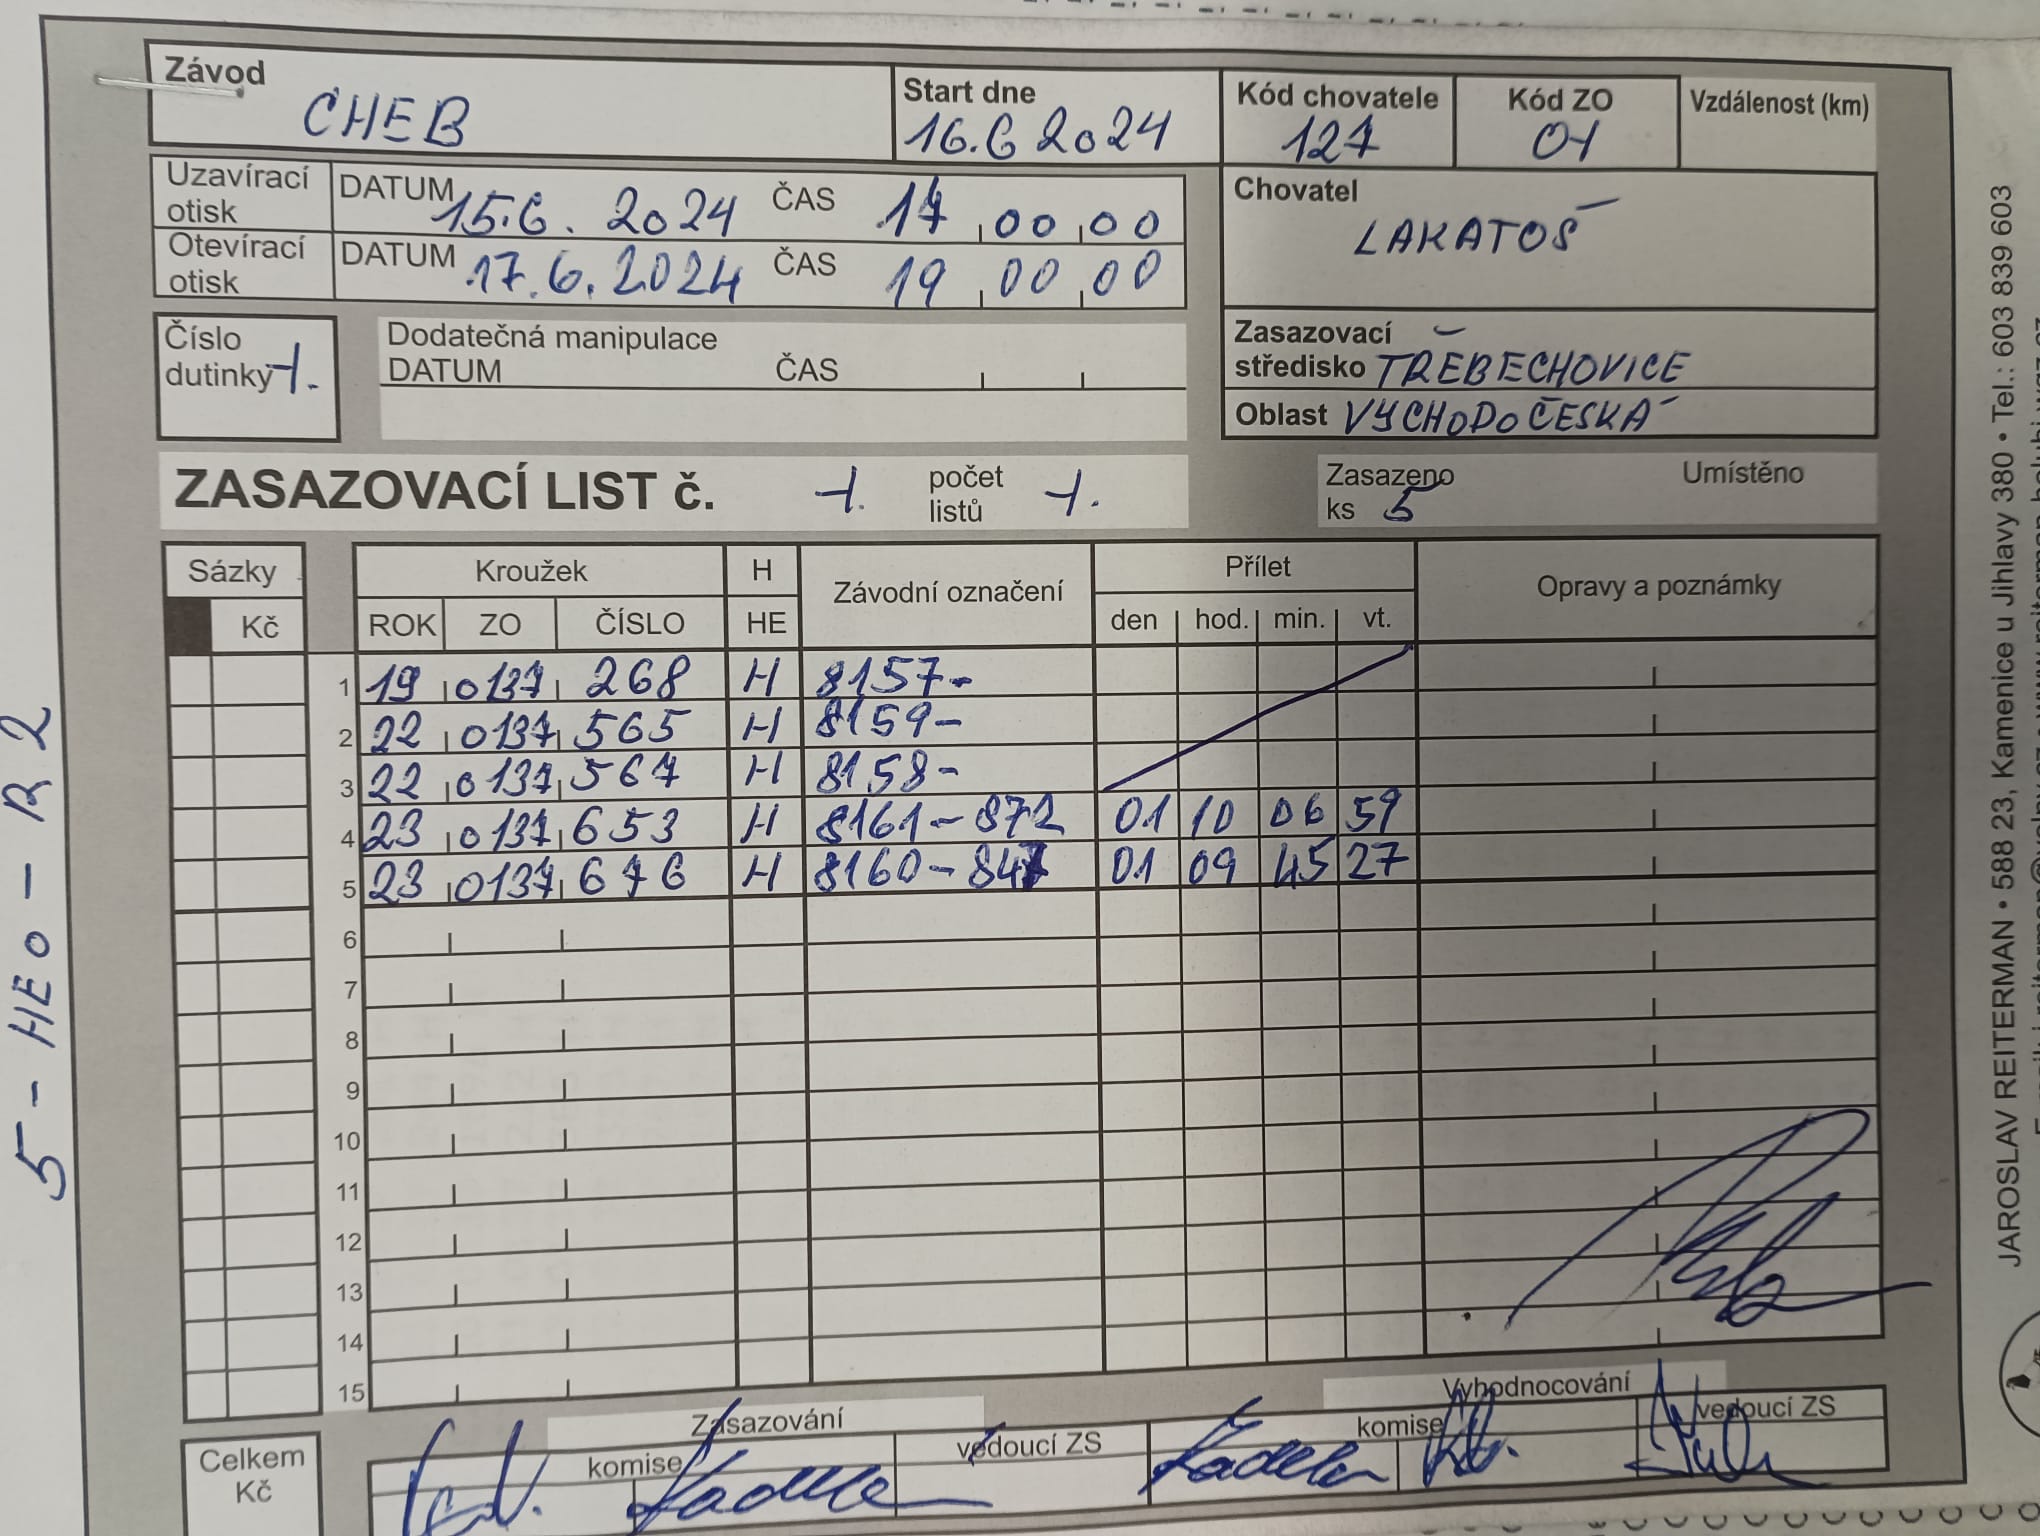 Závod
CHEB
Start dne
16.6 2024
Kód chovatele
127
Kód ZO
01
Vzdálenost (km)
Uzavírací otisk DATUM 15.6. 2024 ČAS 17 00 00
Otevírací otisk DATUM 17.6.2024 ČAS 19 00 00
Chovatel
LAKATOŠ
Číslo dutinky 1.
Dodatečná manipulace
DATUM ČAS
Zasazovací středisko TŘEBECHOVICE
Oblast VÝCHODOČESKÁ
ZASAZOVACÍ LIST č. 1. počet listů 1.
Zasazeno ks 5 Umístěno
Sázky Kroužek H Závodní označení Přílet Opravy a poznámky
Kč ROK ZO ČÍSLO HE den hod. min. vt.
1 19 0137 268 H 8157-
2 22 0137 565 H 8159-
3 22 0137 567 H 8158-
4 23 0137 653 H 8161-872 01 10 06 59
5 23 0137 676 H 8160-847 01 09 45 27
6
7
8
9
10
11
12
13
14
15
Celkem Kč
Zasazování
komise vedoucí ZS
Vyhodnocování
komise vedoucí ZS
5-HEO-R2
JAROSLAV REITERMAN • 588 23, Kamenice u Jihlavy 380 • Tel.: 603 839 603